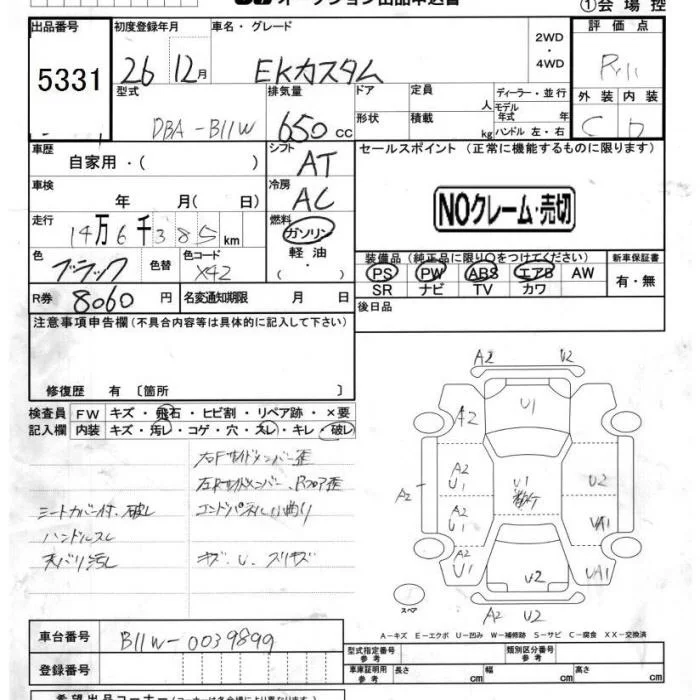 オークション出品申込書 ①会場控
出品番号 初度登録年月 車名・グレード 2WD ・ 4WD 評価点
5331 26 12月 EKカスタム
型式 排気量 ドア 定員 人 ディーラー・並行 外装 内装
DBA-B11W 650cc 形状 積載 kg モデル年式 年 ハンドル 左・右 C D
車歴 自家用・( ) シフト AT セールスポイント(正常に機能するものに限ります)
車検 年 月( 日) 冷房 AC NOクレーム・売切
走行 14万6千385km 燃料 ガソリン 軽油 ・
色 ブラック 色替 色コード X42 装備品(純正品に限り○をつけてください) 新車保証書
PS PW ABS エアB AW 有・無
SR ナビ TV カワ
R券 8060円 名変通知期限 月 日 後日品
注意事項申告欄(不具合内容等は具体的に記入して下さい)
修復歴 有〔箇所 〕
検査員 FW キズ・飛石・ヒビ割・リペア跡・×要
記入欄 内装 キズ・汚レ・コゲ・穴・スレ・キレ・破レ
右Fサイドメンバー歪
左Rサイドメンバー、Rフロア歪
シートカバー付、破レ エンドパネル小曲り
ハンドルスレ
天バリ汚レ キズ、U、スリキズ
A2 U2
A2 U1
A2 U1 U1 U2
A2
A2 U1 UA1
A2 U1 U2 UA1
スペア A2 U2
A-キズ E-エクボ U-凹み W-補修跡 S-サビ C-腐食 XX-交換済
車台番号 B11W-0039899
登録番号
型式指定番号 参考 類別区分番号 参考
車庫証明用 参考 長さ cm 幅 cm 高さ cm
希望出品コーナー(コーナーは各会場により異なります)